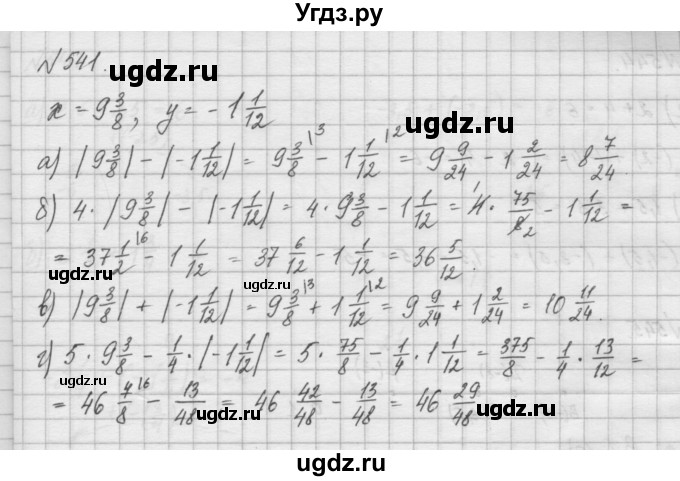 Угдз.ру
№ 541.
ugdz.ru ugdz.ru
x = 9 3/8, y = -1 1/12
а) |9 3/8| - |-1 1/12| = 9 3/8 |3 - 1 1/12 |2 = 9 9/24 - 1 2/24 = 8 7/24.
ugdz.ru ugdz.ru
б) 4 · |9 3/8| - |-1 1/12| = 4 · 9 3/8 - 1 1/12 = 4 1 · 75/8 2 - 1 1/12 =
= 37 1/2 |6 - 1 1/12 = 37 6/12 - 1 1/12 = 36 5/12.
ugdz.ru ugdz.ru
в) |9 3/8| + |-1 1/12| = 9 3/8 |3 + 1 1/12 |2 = 9 9/24 + 1 2/24 = 10 11/24.
г) 5 · 9 3/8 - 1/4 · |-1 1/12| = 5 · 75/8 - 1/4 · 1 1/12 = 375/8 - 1/4 · 13/12 =
ugdz.ru ugdz.ru
= 46 7/8 |6 - 13/48 = 46 42/48 - 13/48 = 46 29/48
ugdz.ru ugdz.ru
ugdz.ru